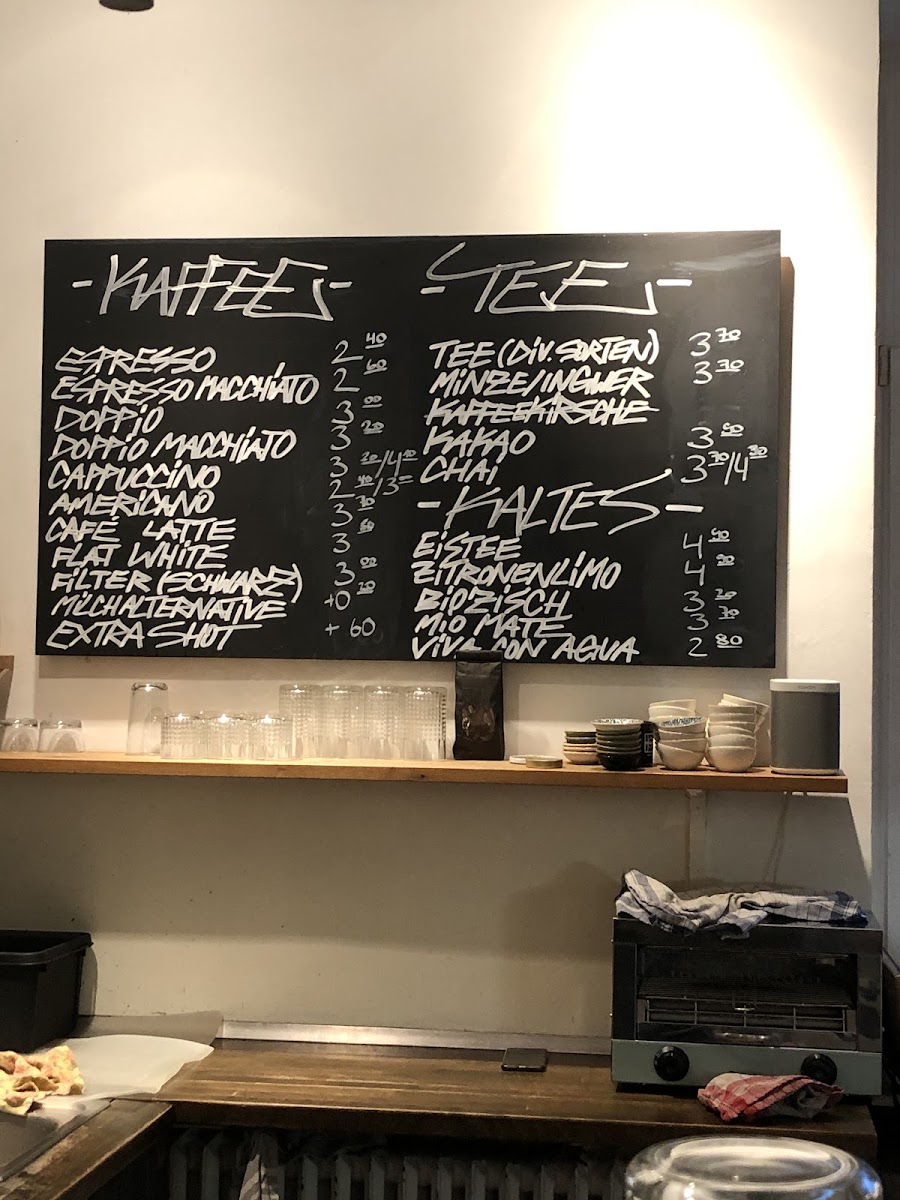 -KAFFEE-
ESPRESSO 2 40
ESPRESSO MACCHIATO 2 60
DOPPIO 3 00
DOPPIO MACCHIATO 3 20
CAPPUCCINO 3 20/4 10
AMERICANO 2 40/3
CAFÉ LATTE 3 70
FLAT WHITE 3 60
FILTER (SCHWARZ) 3 00
MILCHALTERNATIVE +0 20
EXTRA SHOT + 60
-TEE-
TEE (DIV. SORTEN) 3 70
MINZE/INGWER 3 70
KAFFEEKIRSCHE
KAKAO 3
CHAI 3 70/4 30
-KALTES-
EISTEE 4
ZITRONENLIMO 4
BIOZISCH 3 20
MIO MATE 3 70
VIVA CON AGUA 2 80